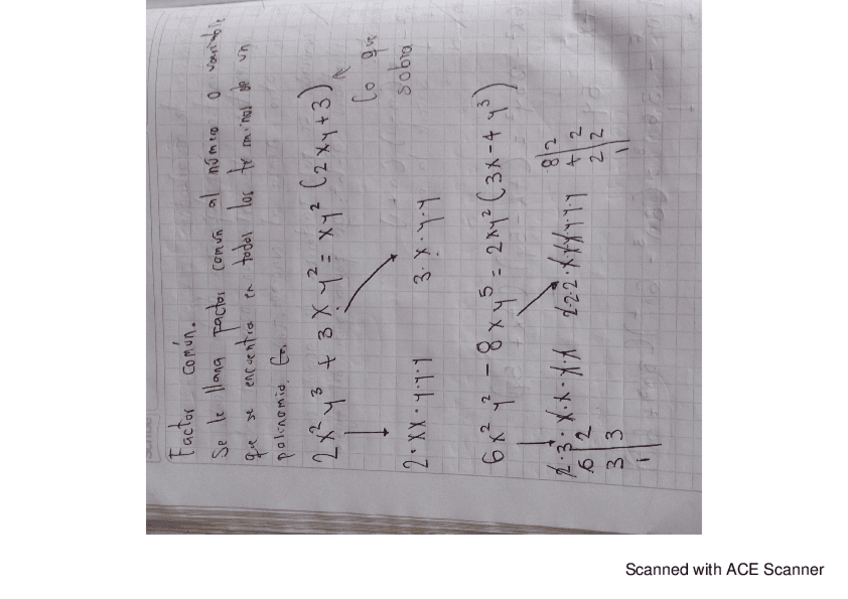 Factor común.
Se le llama Factor común al número o variable
que se encuentra en todos los terminos de un
polinomio. Ej.
2x²y³ + 3xy² = xy² (2xy+3)
Lo que
sobra
2·xx·y·y·y 3·x·y·y
6x²y² - 8xy⁵ = 2xy² (3x-4y³)
2·3·x·x·y·y 2·2·2·x·y·y·y·y·y
6 2 8 2
3 3 4 2
1 2 2
1
Scanned with ACE Scanner